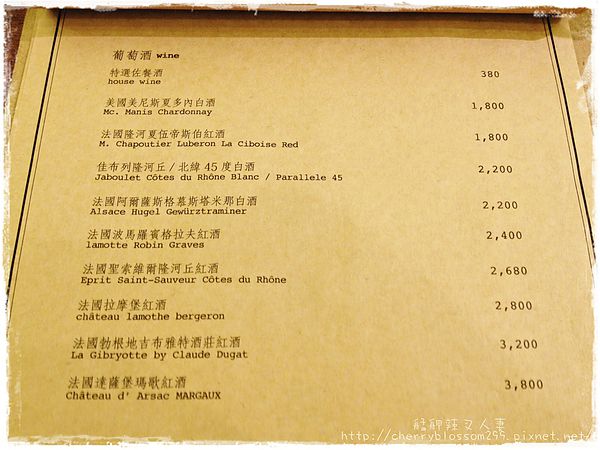 葡萄酒 wine
特選佐餐酒 380
house wine
美國美尼斯夏多內白酒 1,800
Mc. Manis Chardonnay
法國隆河夏伍帝斯伯紅酒 1,800
M. Chapoutier Luberon La Ciboise Red
佳布列隆河丘/北緯45度白酒 2,200
Jaboulet Côtes du Rhône Blanc / Parallele 45
法國阿爾薩斯格慕斯塔米那白酒 2,200
Alsace Hugel Gewürztraminer
法國波馬羅賓格拉夫紅酒 2,400
lamotte Robin Graves
法國聖索維爾隆河丘紅酒 2,680
Eprit Saint-Sauveur Côtes du Rhône
法國拉摩堡紅酒 2,800
château lamothe bergeron
法國勃根地吉布雅特酒莊紅酒 3,200
La Gibryotte by Claude Dugat
法國達薩堡瑪歌紅酒 3,800
Château d' Arsac MARGAUX
艋舺辣叉人妻
http://cherryblossom295.pixnet.net/